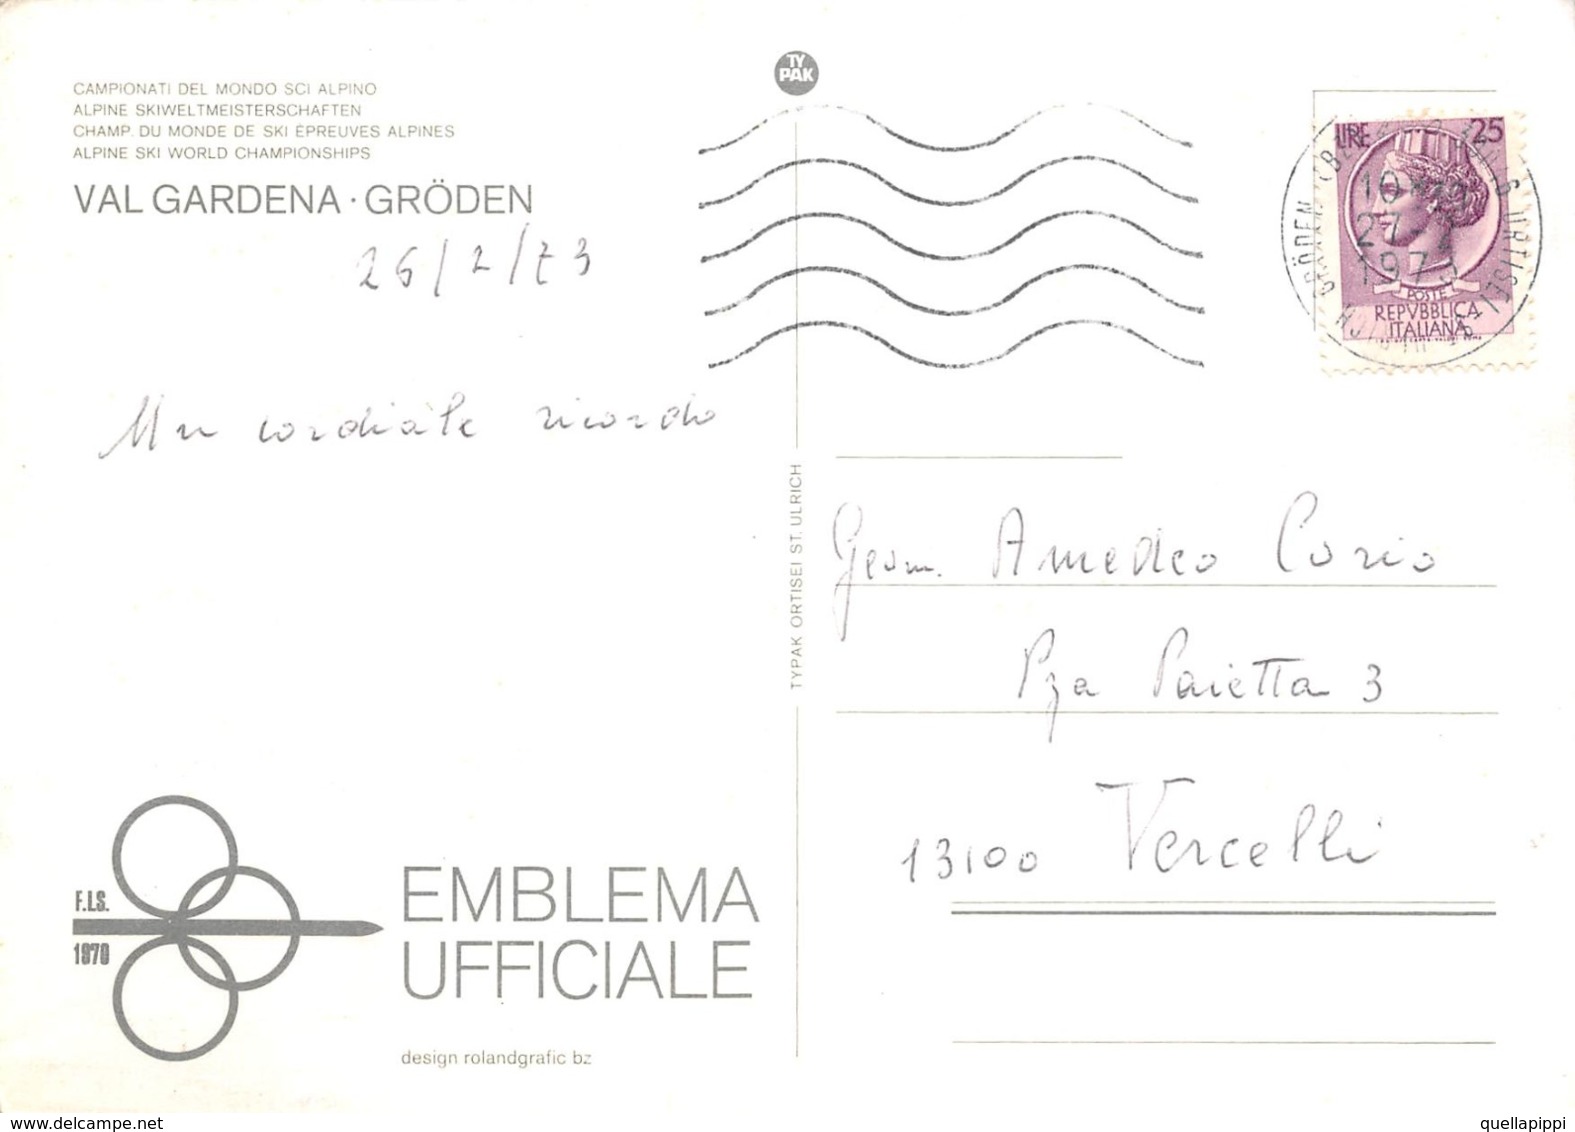 TY
PAK
CAMPIONATI DEL MONDO SCI ALPINO
ALPINE SKIWELTMEISTERSCHAFTEN
CHAMP. DU MONDE DE SKI ÉPREUVES ALPINES
ALPINE SKI WORLD CHAMPIONSHIPS
VAL GARDENA · GRÖDEN
26/2/73
Un cordiale ricordo
LIRE 25
POSTE
REPVBBLICA
ITALIANA
GRÖDEN
ORTISEI
27-2
1973
TYPAK ORTISEI ST. ULRICH
Geom. Amedeo Corio
Pza Paietta 3
13100 Vercelli
F.I.S.
1970
EMBLEMA
UFFICIALE
design rolandgrafic bz
www.delcampe.net
quellapippi